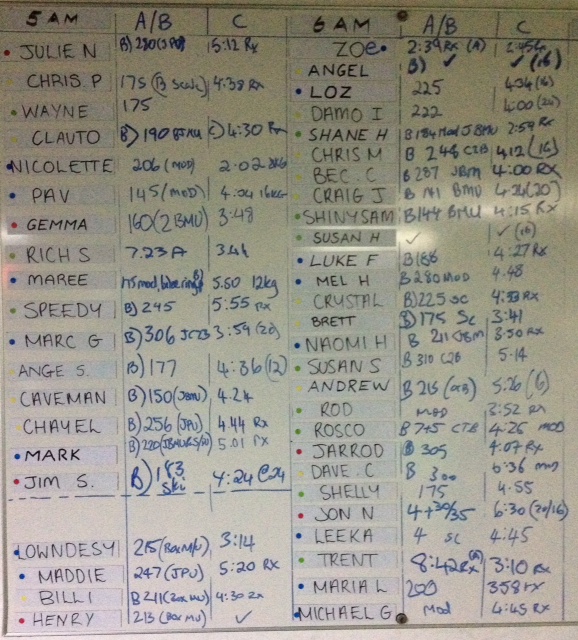 5 AM A/B C
JULIE N 5:12 Rx
CHRIS. P 175 4:38 Rx
WAYNE 175
CLAUTO B) 190 4:30 Rx
NICOLETTE 206 (MOD) 2.02
PAV 145 (MOD) 4:04 16KG
GEMMA 160 (2 BMU) 3:48
RICH S 7.23 A
MAREE 5.50 12kg
SPEEDY B) 245 5:55 Rx
MARC G B) 306 3:59 (20)
ANGE S. B) 177 4:36 (12)
CAVEMAN B) 150 (JBMU) 4.24
CHAYEL B) 256 (JPU) 4.44 Rx
MARK B) 220 5.01 Rx
JIM S. B) 183 4:24 @24
Ski
LOWNDESY 215 3:14
MADDIE 247 (JPU) 5:20 Rx
BILLI B 211 4:30
HENRY 213 ✓
6 AM A/B C
ZOE 2:39 Rx (A)
ANGEL B) ✓ ✓ (16)
LOZ 225 4:34 (16)
DAMO I 222 4:00
SHANE H B 184 Mod JBMU 2:59 Rx
CHRIS M B 248 C2B 4:12 (16)
BEC. C B 287 JBM 4:00 Rx
CRAIG J B 141 BMU 4:24 (20)
SHINYSAM B 144 BMU 4:15 Rx
SUSAN H ✓ ✓ (16)
LUKE F B 4:27 Rx
MEL H B 280 MOD 4.48
CRYSTAL B) 225 SC Rx
BRETT B) 175 SC 3:41
NAOMI H B 211 JBM 3:50 Rx
SUSAN S B 310 C2B 5:14
ANDREW B 215 5:26
ROD MOD 2:52 Rx
ROSCO B 4:26 MOD
JARROD B 305 4:07 Rx
DAVE. C B 300 6:36
SHELLY 175 4.55
JON N 4+30/35 6:30 (20/16)
LEEKA 4 SC 4:45
TRENT 8:42 Rx (A) 3:10 Rx
MARIA L 200 358 rx
MICHAEL G Mod 4:45 Rx